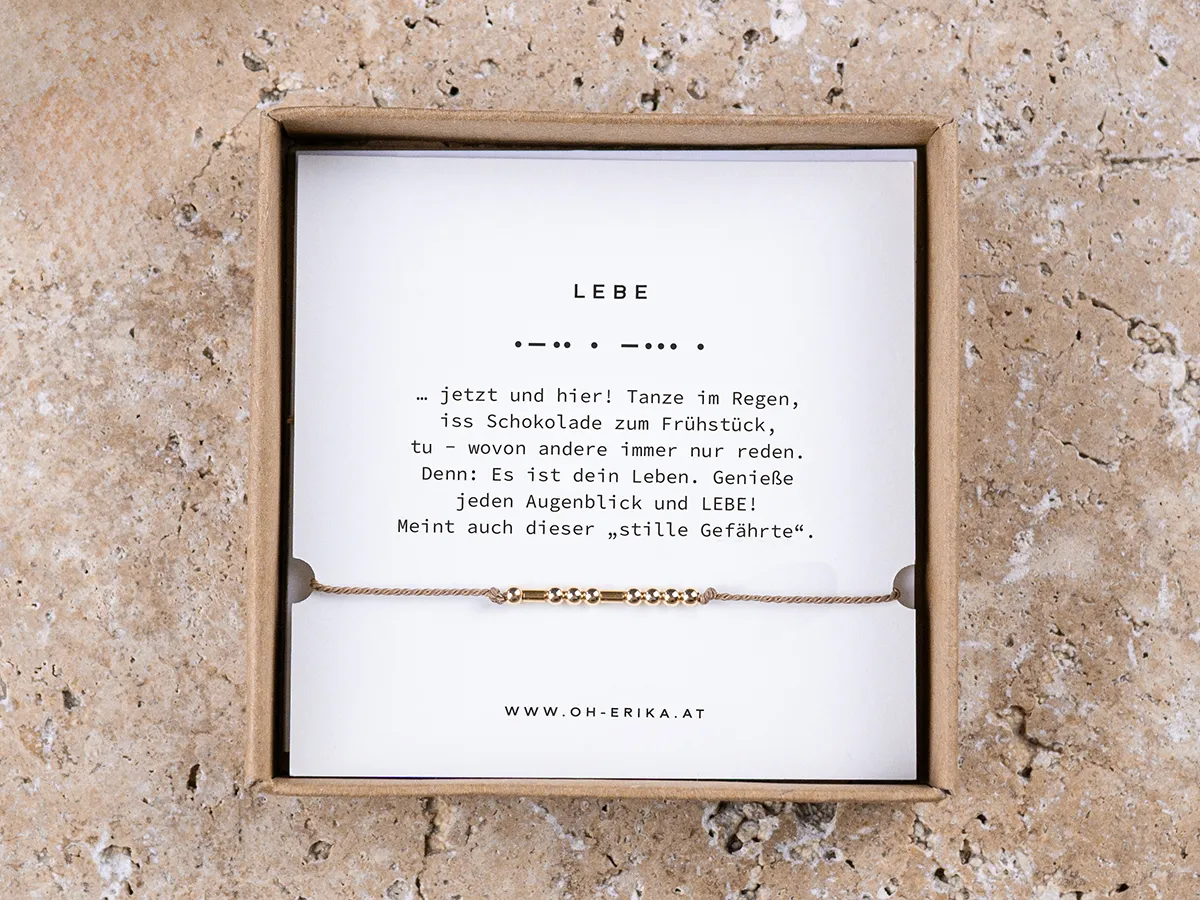 LEBE
•–•• • –••• •
… jetzt und hier! Tanze im Regen,
iss Schokolade zum Frühstück,
tu – wovon andere immer nur reden.
Denn: Es ist dein Leben. Genieße
jeden Augenblick und LEBE!
Meint auch dieser „stille Gefährte“.
WWW.OH-ERIKA.AT